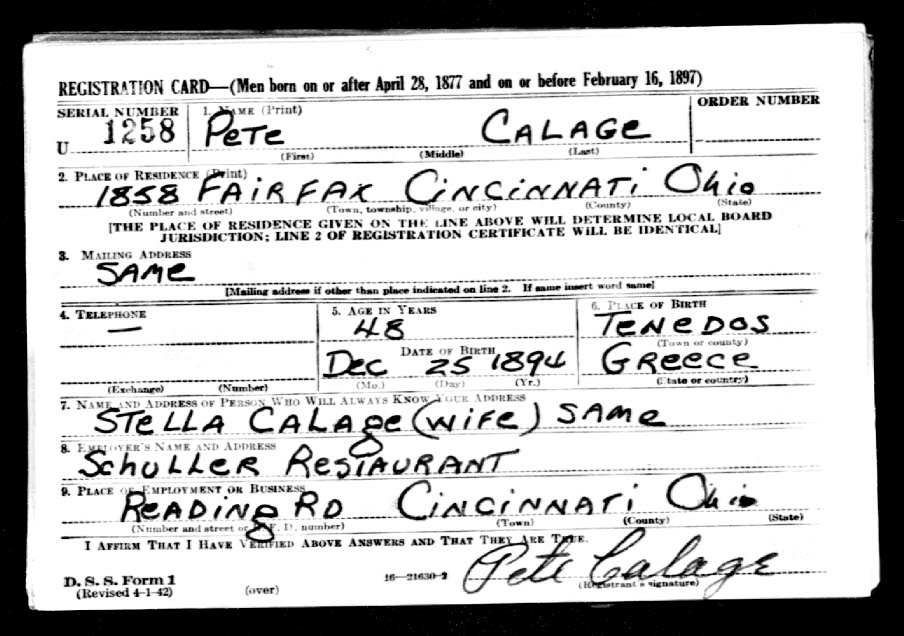 REGISTRATION CARD—(Men born on or after April 28, 1877 and on or before February 16, 1897)
SERIAL NUMBER 1. NAME (Print) ORDER NUMBER
U 1258 PETE CALAGE
(First) (Middle) (Last)
2. PLACE OF RESIDENCE (Print)
1858 FAIRFAX CINCINNATI Ohio
(Number and street) (Town, township, village, or city) (County) (State)
[THE PLACE OF RESIDENCE GIVEN ON THE LINE ABOVE WILL DETERMINE LOCAL BOARD
JURISDICTION; LINE 2 OF REGISTRATION CERTIFICATE WILL BE IDENTICAL]
3. MAILING ADDRESS
SAME
[Mailing address if other than place indicated on line 2. If same insert word same]
4. TELEPHONE 5. AGE IN YEARS 6. PLACE OF BIRTH
— 48 TENEDOS
DATE OF BIRTH (Town or county)
DEC 25 1894 GREECE
(Exchange) (Number) (Mo.) (Day) (Yr.) (State or country)
7. NAME AND ADDRESS OF PERSON WHO WILL ALWAYS KNOW YOUR ADDRESS
STELLA CALAGE (WIFE) SAME
8. EMPLOYER'S NAME AND ADDRESS
SCHULLER RESTAURANT
9. PLACE OF EMPLOYMENT OR BUSINESS
READING RD CINCINNATI Ohio
(Number and street or R. F. D. number) (Town) (County) (State)
I AFFIRM THAT I HAVE VERIFIED ABOVE ANSWERS AND THAT THEY ARE TRUE.
Pete Calage
D. S. S. Form 1 16—21630-2 (Registrant's signature)
(Revised 4-1-42) (over)